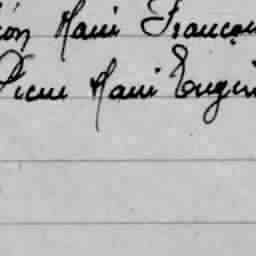 Marie François
Pierre Marie Eugèn